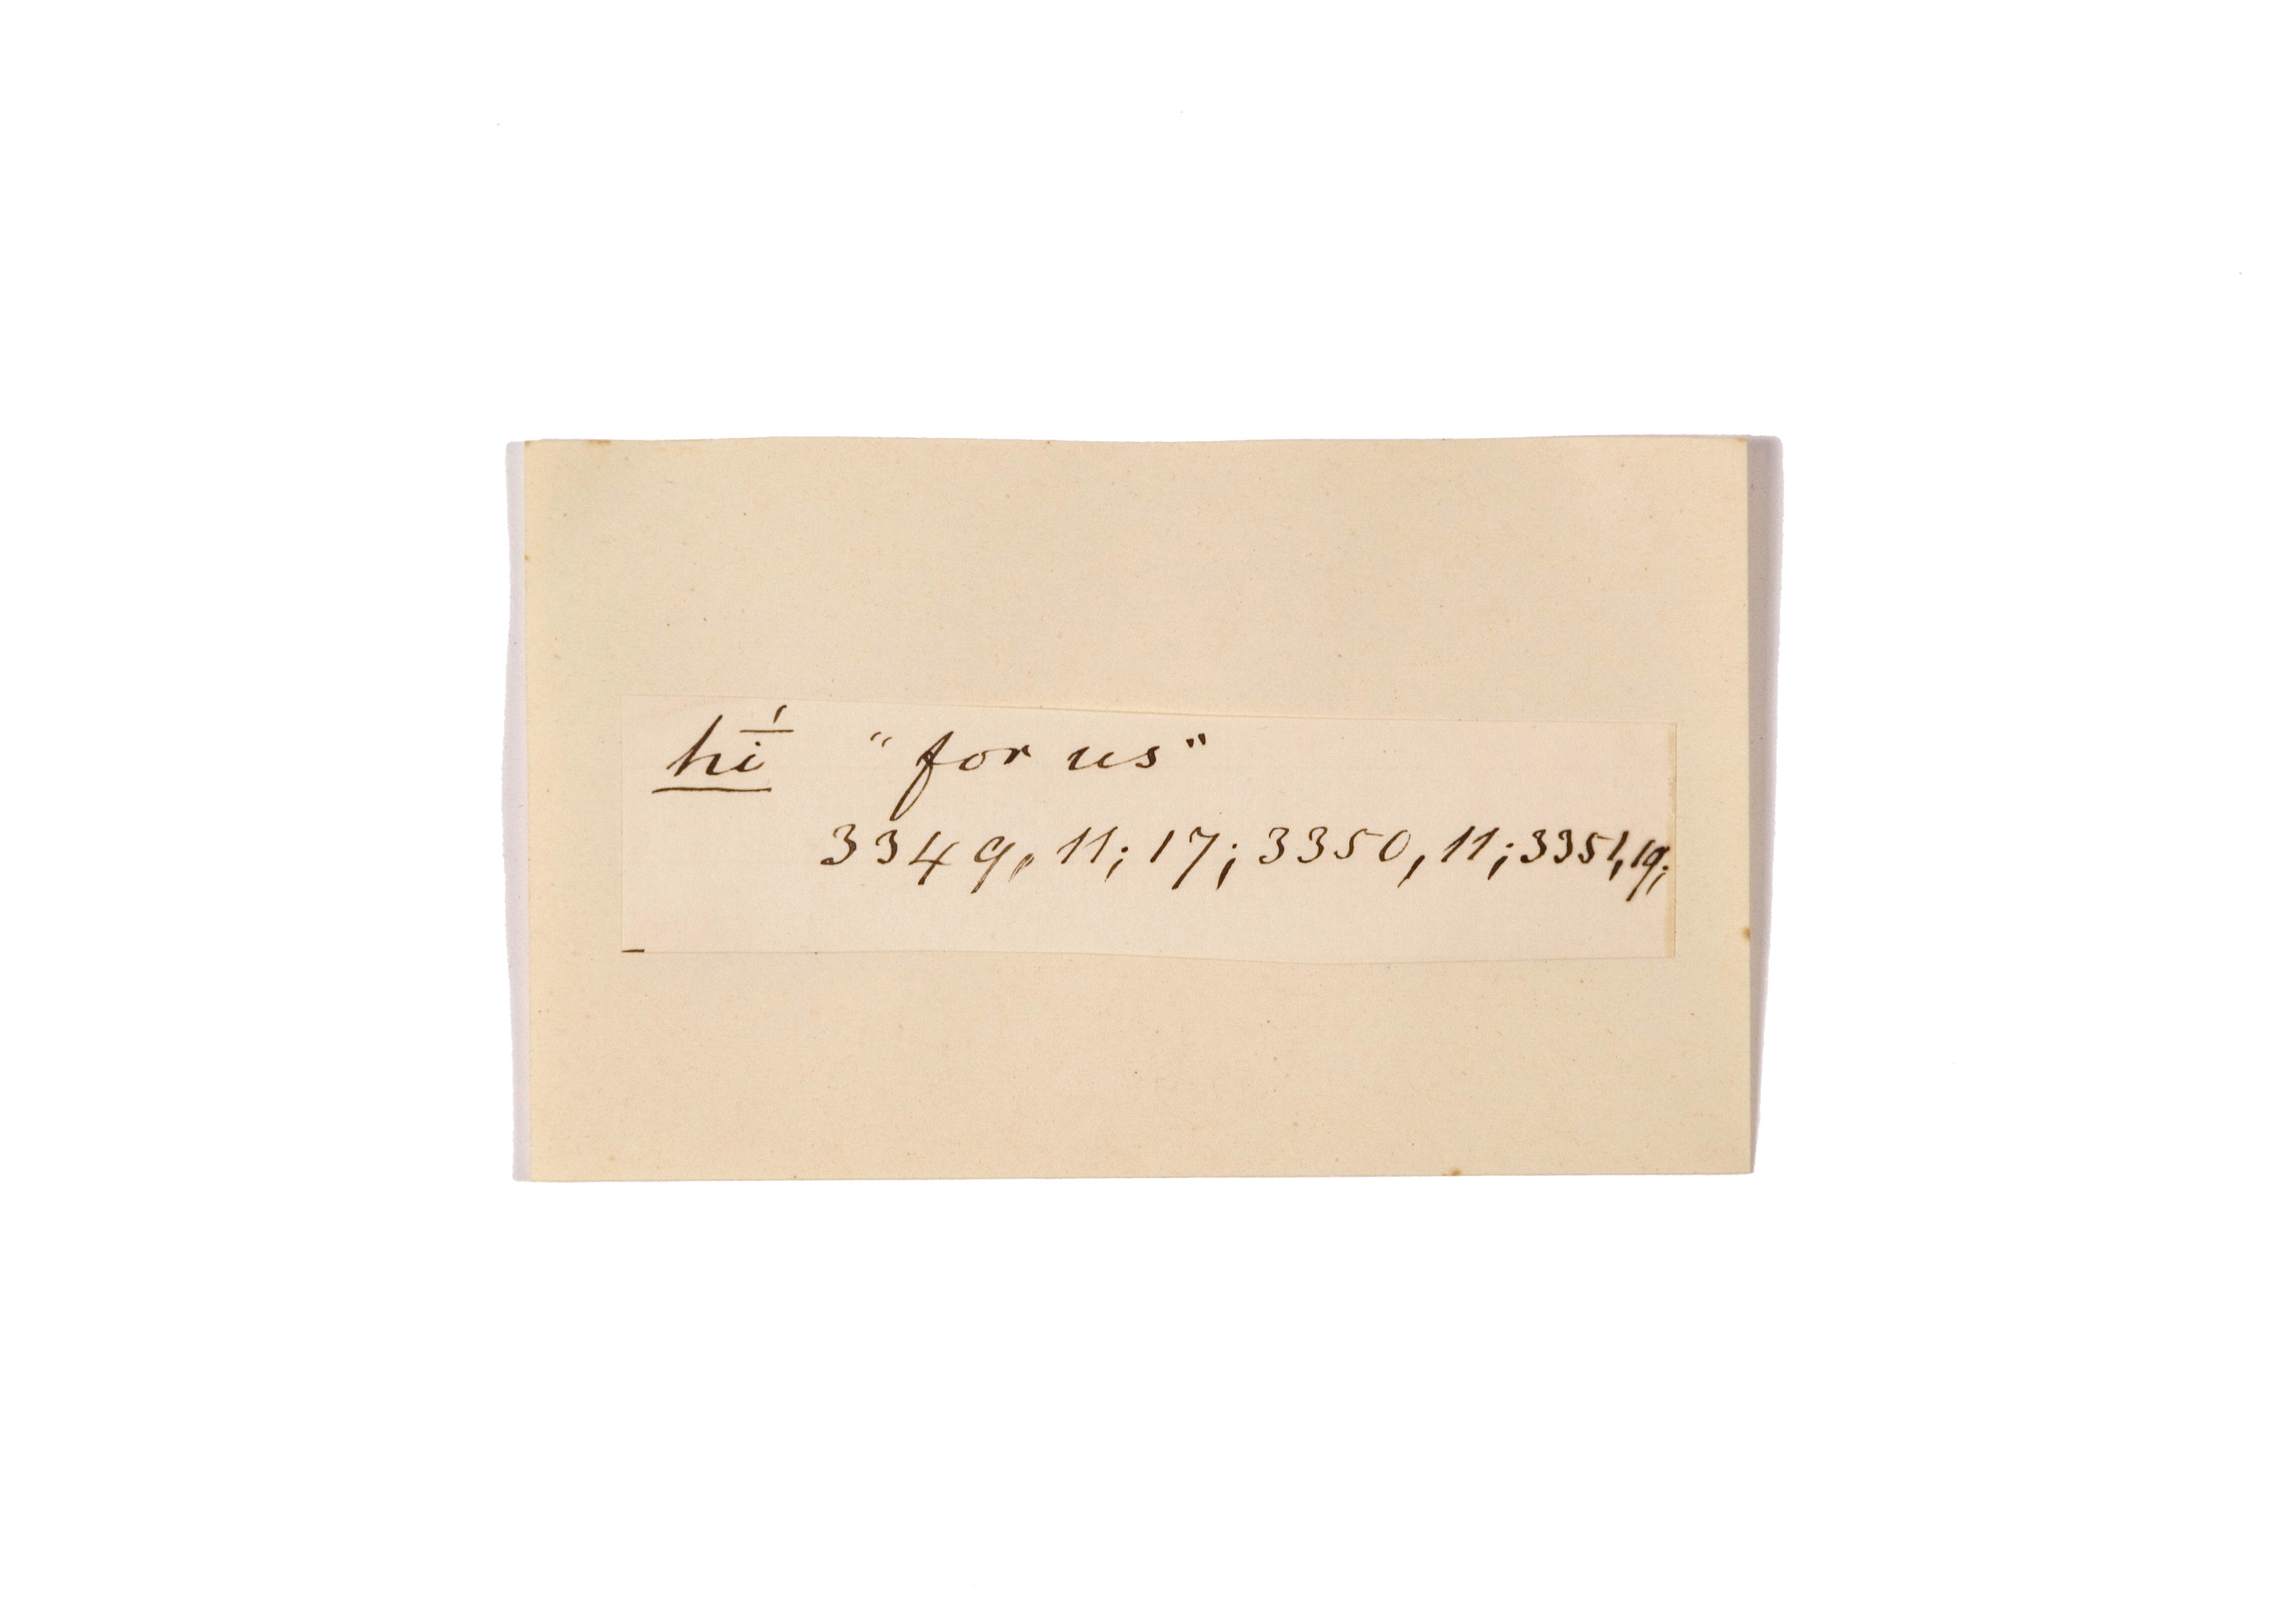 hī́ "for us"
3349, 11; 17; 3350, 11; 3351, 19;